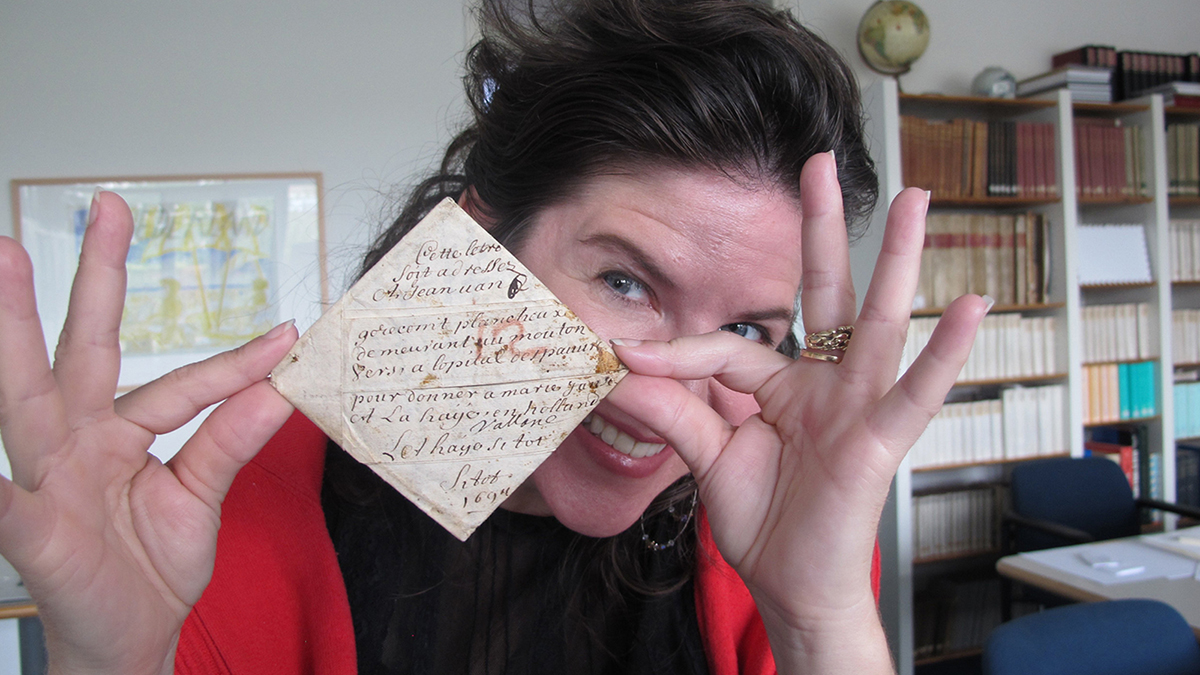 Cette letre
soit adressez
A Jean uan
gorecomt plancheux
demeurant au mouton
Versi a lopital despanur
pour donner a marie
A La haye en holland
Vallane
Let haye si tot
Si tot
1694